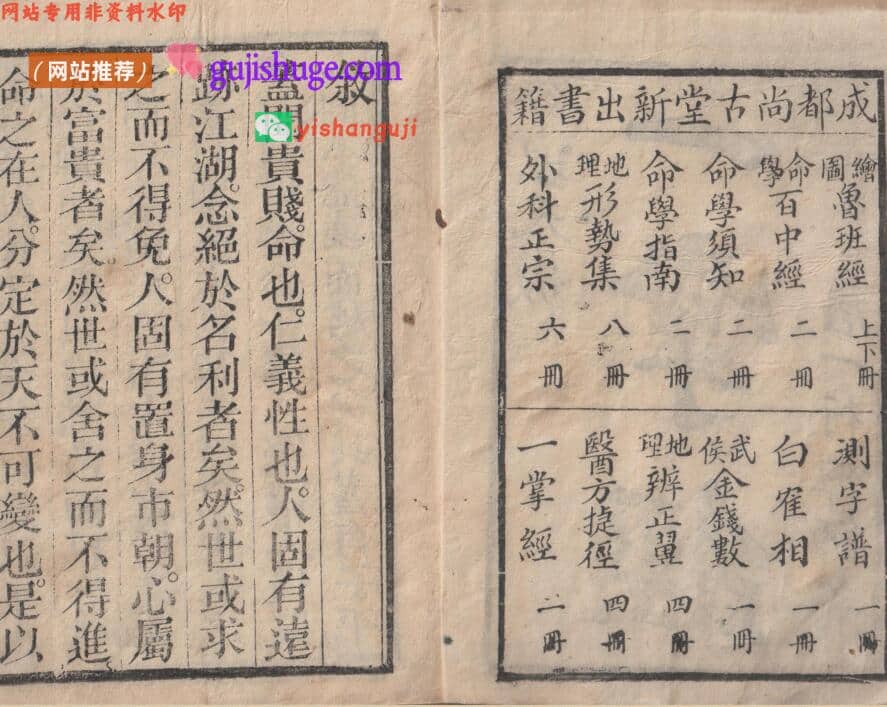 网站专用非资料水印
（网站推荐）
gujishuge.com
yishanguji
成都尚古堂新出書籍
繪圖魯班經 上下冊
命學百中經 二冊
命學須知 二冊
命學指南 二冊
地理形勢集 八冊
外科正宗 六冊
測字譜 一冊
白雀相 一冊
武侯金錢數 一冊
地理辨正翼 四冊
醫方捷徑 四冊
一掌經 二冊
敘
蓋聞貴賤。命也。仁義性也。人固有遠
跡江湖。念絕於名利者矣。然世或求
之而不得免。人固有置身市朝。心屬
於富貴者矣。然世或舍之而不得進。
命之在人。分定於天。不可變也。是以